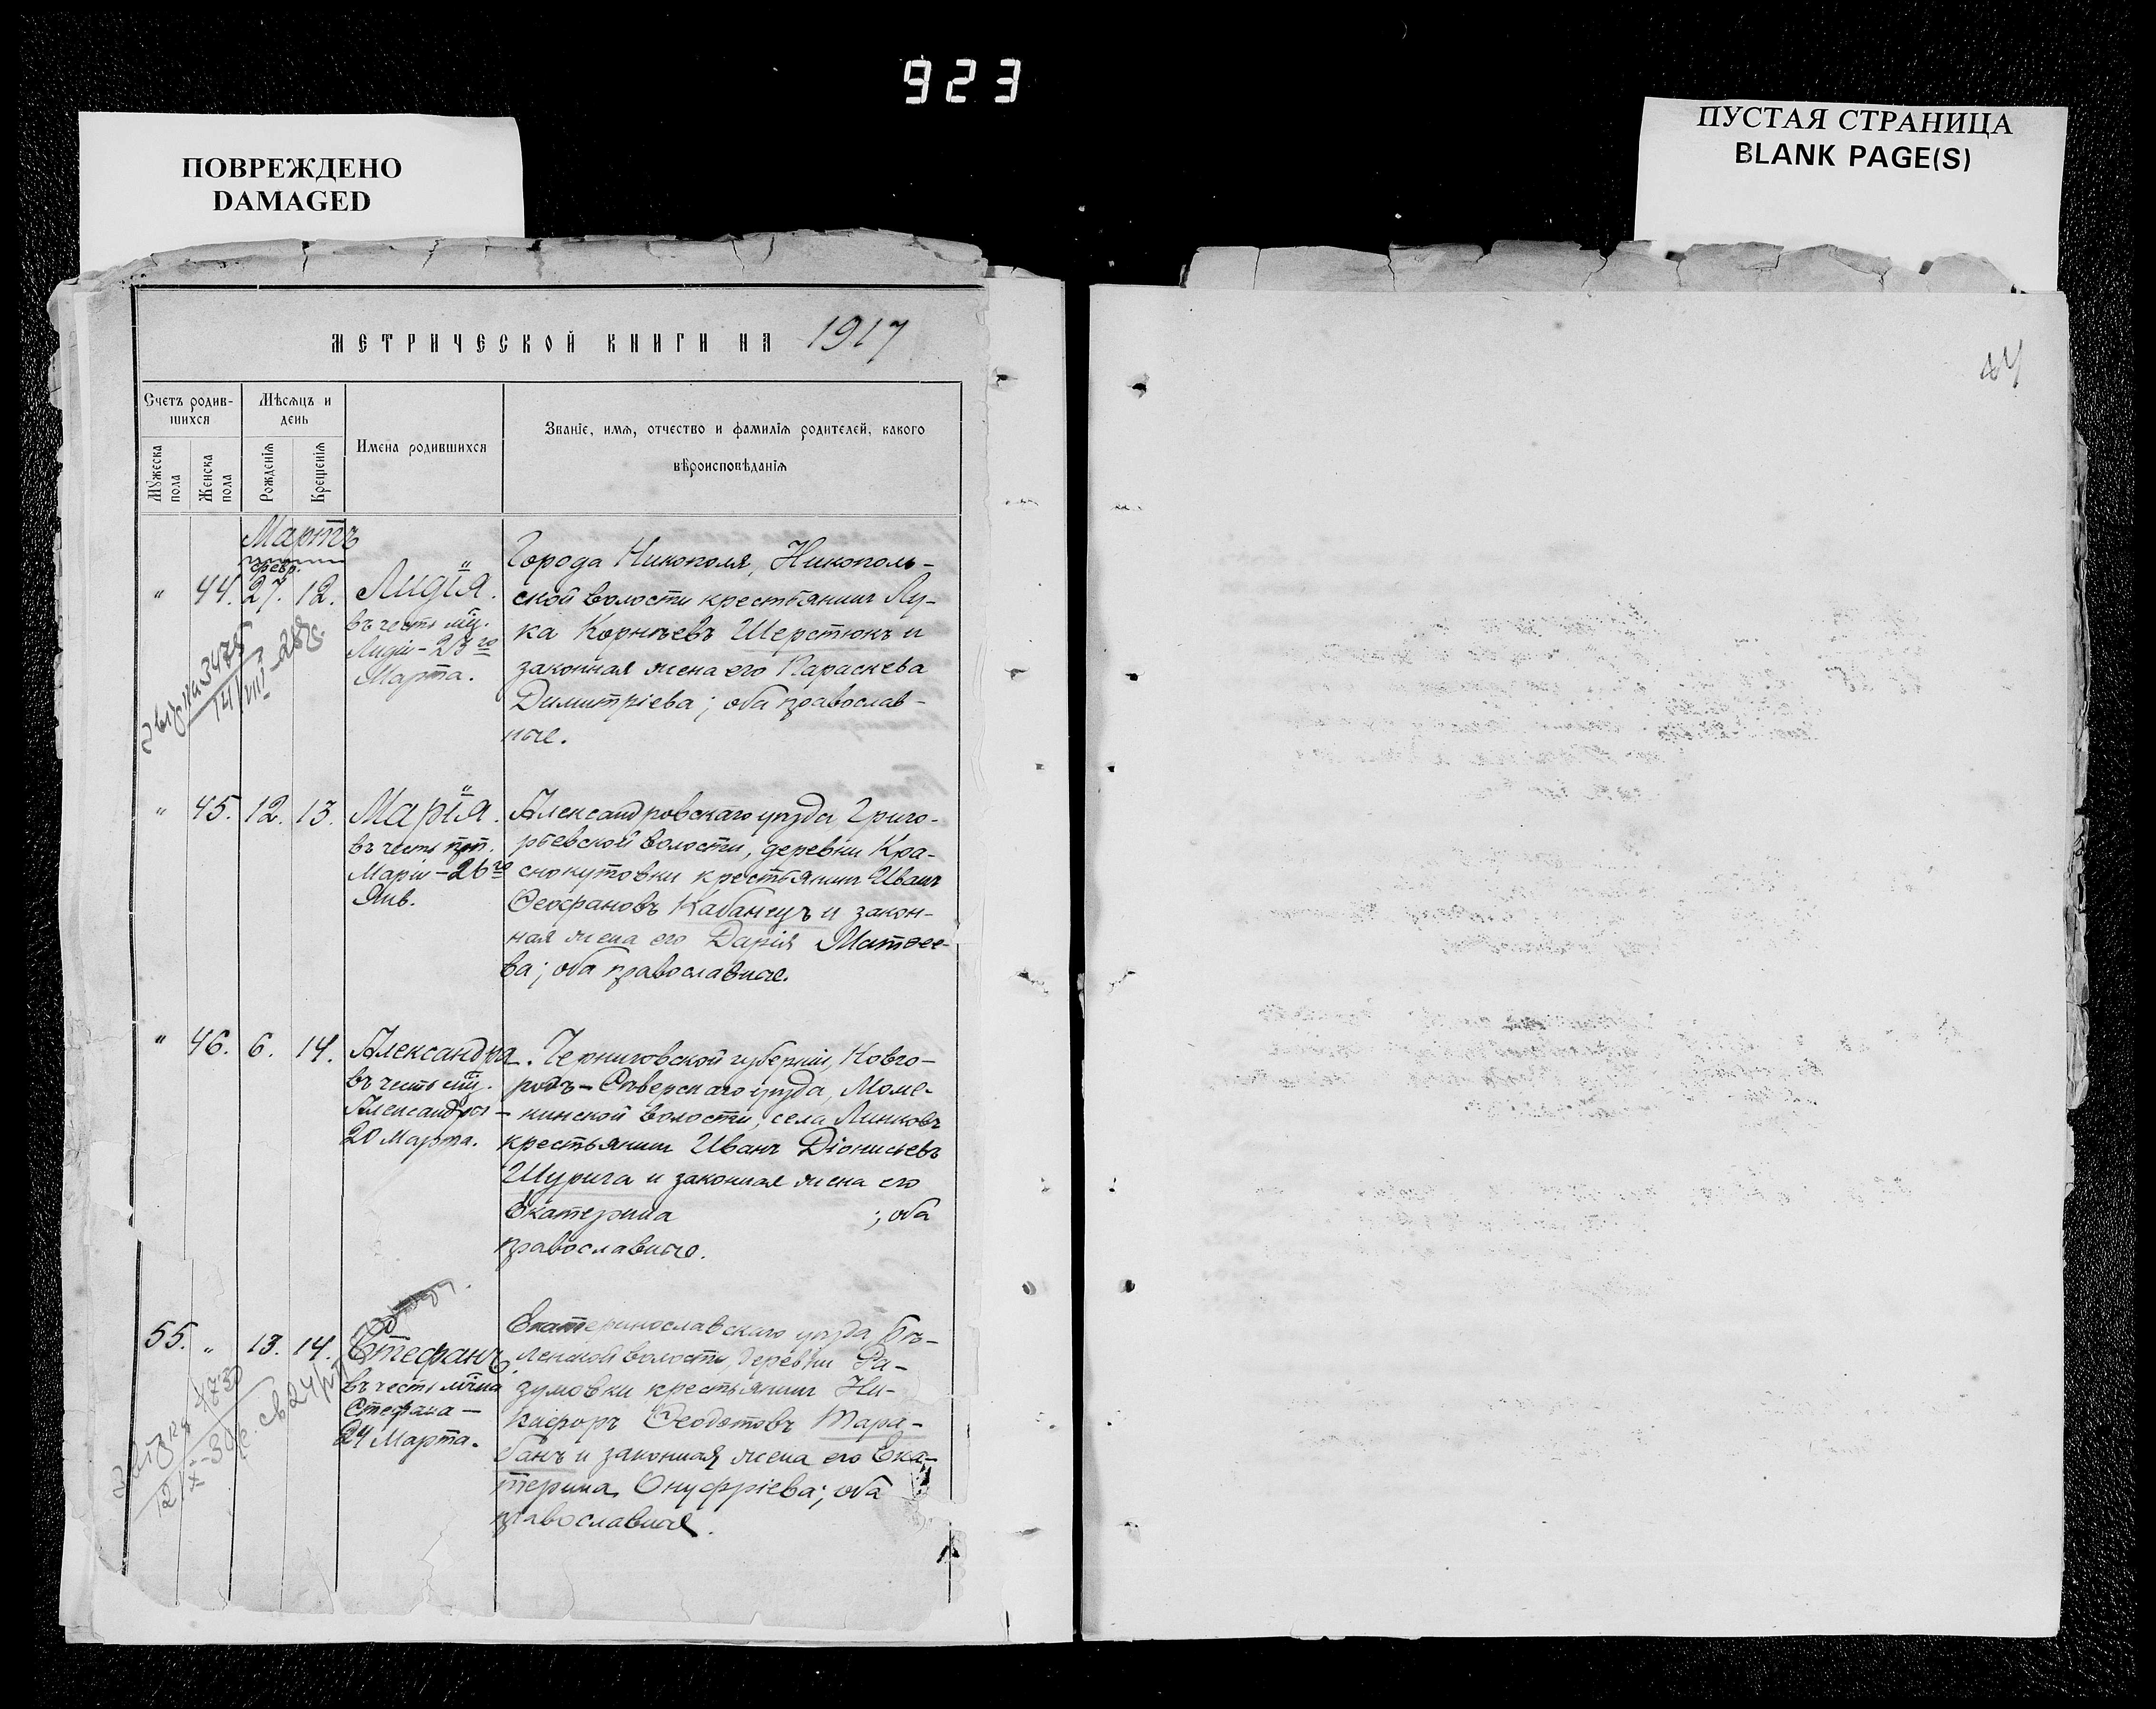 923
ПОВРЕЖДЕНО
DAMAGED
ПУСТАЯ СТРАНИЦА
BLANK PAGE(S)
МЕТРИЧЕСКОЙ КНИГИ НА 1917
Счетъ родив-
шихся
Мѣсяцъ и
день
Имена родившихся
Званіе, имя, отчество и фамилія родителей, какого
вѣроисповѣданія
Мужеска пола
Женска пола
Рожденія
Крещенія
Мартъ
февр.
" 44. 27. 12. Лидія.
въ честь мц.
Лидіи - 23го
Марта.
Города Никополя, Никополь-
ской волости крестьянинъ Лу-
ка Корнѣевъ Шерстюкъ и
законная жена его Параскева
Димитріева; оба православ-
ные.
" 45. 12. 13. Марія.
въ честь прп.
Маріи - 26го
Янв.
Александровскаго уѣзда, Григо-
рьевской волости, деревни Кра-
снокутовки крестьянинъ Иванъ
Ѳеофановъ Кабанецъ и закон-
ная жена его Дарія Матѳее-
ва; оба православные.
" 46. 6. 14. Александра.
въ честь мц.
Александры -
20 Марта.
Черниговской губерніи, Новго-
родъ-Сѣверскаго уѣзда,
волости, села
крестьянинъ Иванъ Діонисьевъ
Шурига и законная жена его
Екатерина ; оба
православные.
55. " 13. 14. Стефанъ.
въ честь
Стефана -
24 Марта.
Екатеринославскаго уѣзда, Бѣ-
ленской волости, деревни Ра-
зумовки крестьянинъ Ни-
кифоръ Ѳеодотовъ Тара-
банъ и законная жена его Ека-
терина Онуфріева; оба
православные.